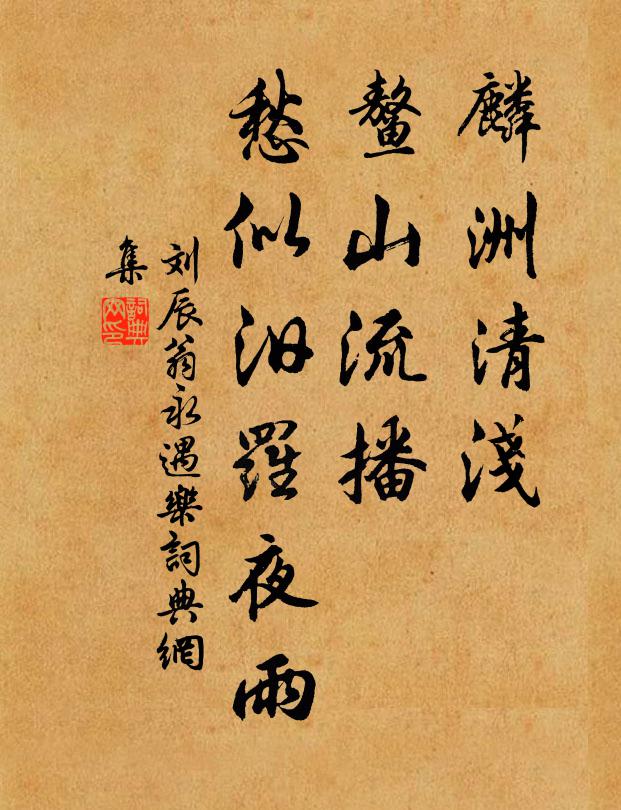 麟洲清淺
鳌山流播
愁似汨羅夜雨
刘辰翁永遇樂詞典網
集
詞典